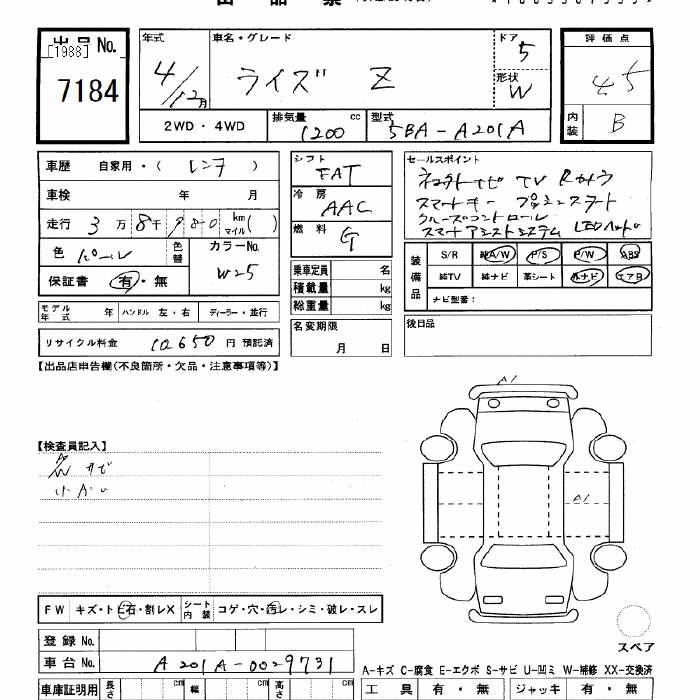 出品票
出品 No.
[1988]
7184
年式
4/12月
車名・グレード
ライズ Z
ドア
5
形状
W
評価点
4.5
内装
B
2WD・4WD
排気量 cc
1200
型式
5BA-A201A
車歴 自家用・( レンタ )
車検 年 月
走行 3万8千980 km マイル ( )
色 パール
色替
カラーNo.
W25
保証書 有・無
モデル年式 年 ハンドル 左・右 ディーラー・並行
リサイクル料金 10650 円 預託済
シフト
FAT
冷房
AAC
燃料
G
乗車定員 名
積載量 kg
総重量 kg
名変期限
月 日
セールスポイント
TV Rカメラ
スマートキー プッシュスタート
クルーズコントロール
スマートアシストシステム LEDヘッド
装備品
S/R 純A/W P/S P/W ABS
純TV 純ナビ 革シート 外ナビ エアB
ナビ型番:
後日品
【出品店申告欄(不良箇所・欠品・注意事項等)】
【検査員記入】
サビ
小A
A1
A1
FW キズ・トビ石・割レX
シート内装 コゲ・穴・汚レ・シミ・破レ・スレ
登録 No.
車台 No. A201A-0029731
スペア
A-キズ C-腐食 E-エクボ S-サビ U-凹ミ W-補修 XX-交換済
車庫証明用 長さ cm 幅 cm 高さ cm
工具 有・無 ジャッキ 有・無